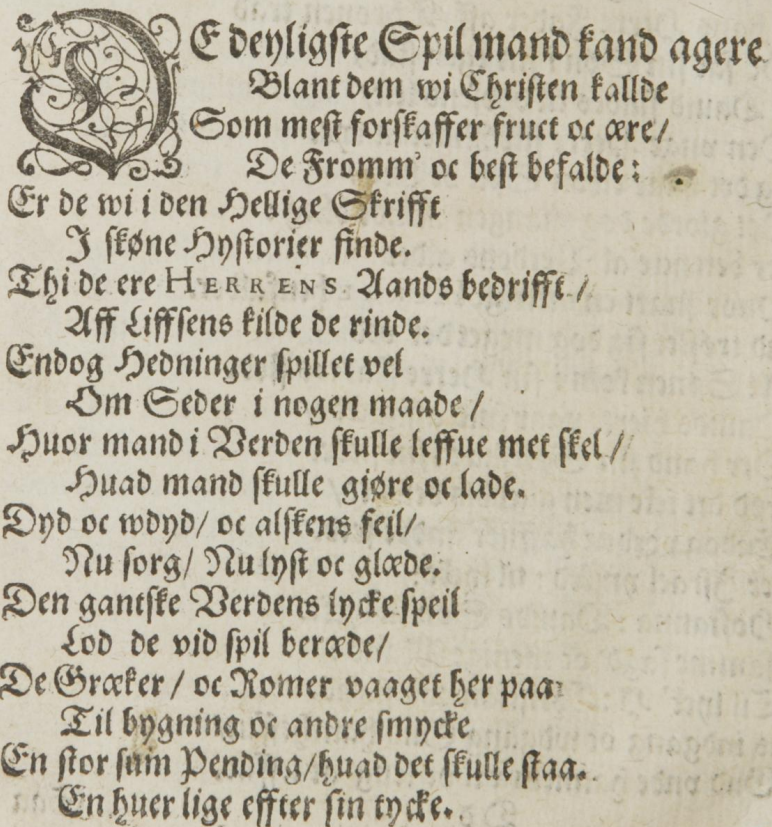 DE deyligste Spil mand kand agere
Blant dem wi Christen kallde
Som mest forskaffer fruct oc ære/
De Fromm' oc best befalde:
Er de wi i den Hellige Skrifft
I skøne Hystorier finde.
Thi de ere HERRENS Aands bedrifft/
Aff Liffsens kilde de rinde.
Endog Hedninger spillet vel
Om Seder i nogen maade/
Huor mand i Verden skulle leffue met skel/
Huad mand skulle giøre oc lade.
Dyd oc wdyd/ oc alskens feil/
Nu sorg/ Nu lyst oc glæde.
Den gantske Verdens lycke speil
Lod de vid spil beræde/
De Græker/ oc Romer vaaget her paa
Til bygning oc andre smycke
En stor sum Pending/ huad det skulle staa.
En huer lige effter sin tycke.